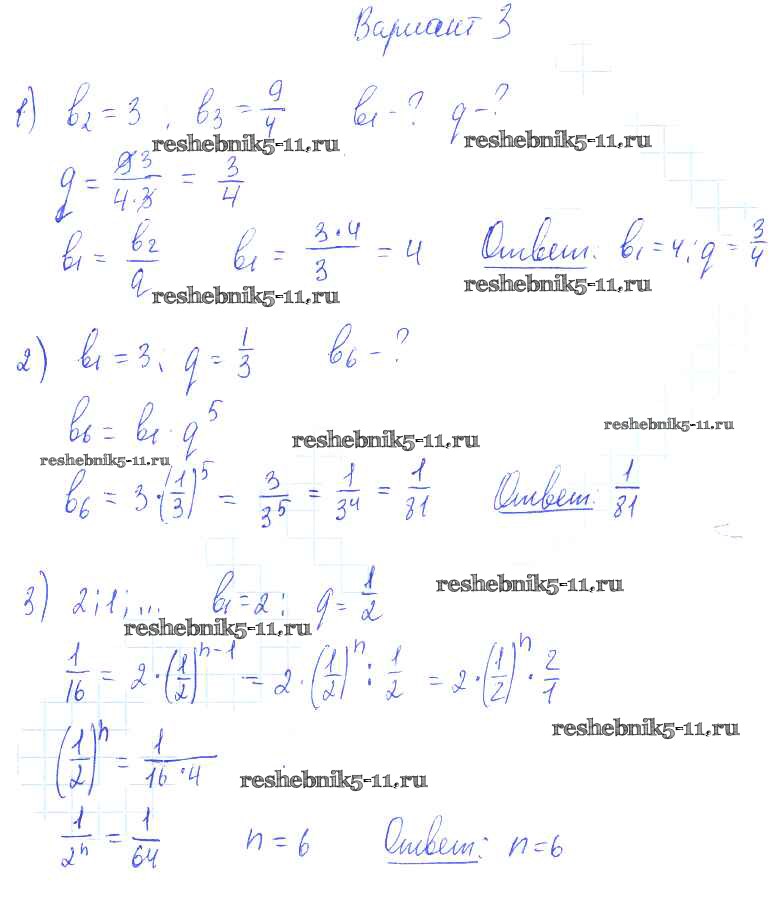 Вариант 3
1) b₂ = 3 ; b₃ = 9/4   b₁ - ?   q - ?
reshebnik5-11.ru   reshebnik5-11.ru
q = 9 3 / 4·3 = 3/4
b₁ = b₂/q   b₁ = 3·4/3 = 4   Ответ: b₁ = 4; q = 3/4
reshebnik5-11.ru   reshebnik5-11.ru
2) b₁ = 3; q = 1/3   b₆ - ?
b₆ = b₁ · q⁵
reshebnik5-11.ru   reshebnik5-11.ru   reshebnik5-11.ru
b₆ = 3·(1/3)⁵ = 3/3⁵ = 1/3⁴ = 1/81   Ответ: 1/81
reshebnik5-11.ru
3) 2; 1; ...   b₁ = 2;   q = 1/2
reshebnik5-11.ru
1/16 = 2·(1/2)ⁿ⁻¹ = 2·(1/2)ⁿ : 1/2 = 2·(1/2)ⁿ · 2/1
reshebnik5-11.ru
(1/2)ⁿ = 1/16·4
reshebnik5-11.ru
1/2ⁿ = 1/64   n = 6   Ответ: n = 6